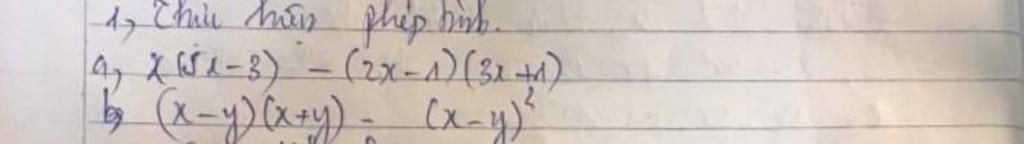 1, Thực hiện phép tính.
a, x(5x-3) - (2x-1)(3x+1)
b, (x-y)(x+y) - (x-y)²